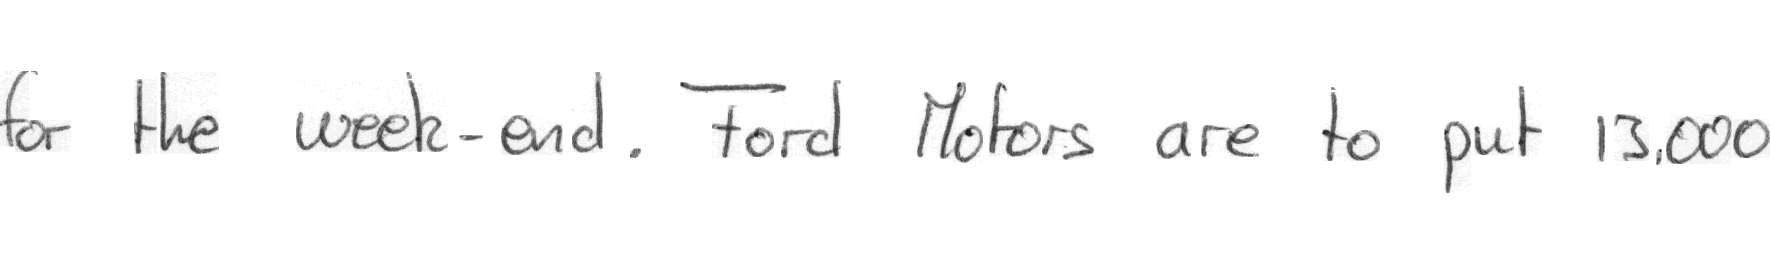 for the week-end. Ford Motors are to put 13,000